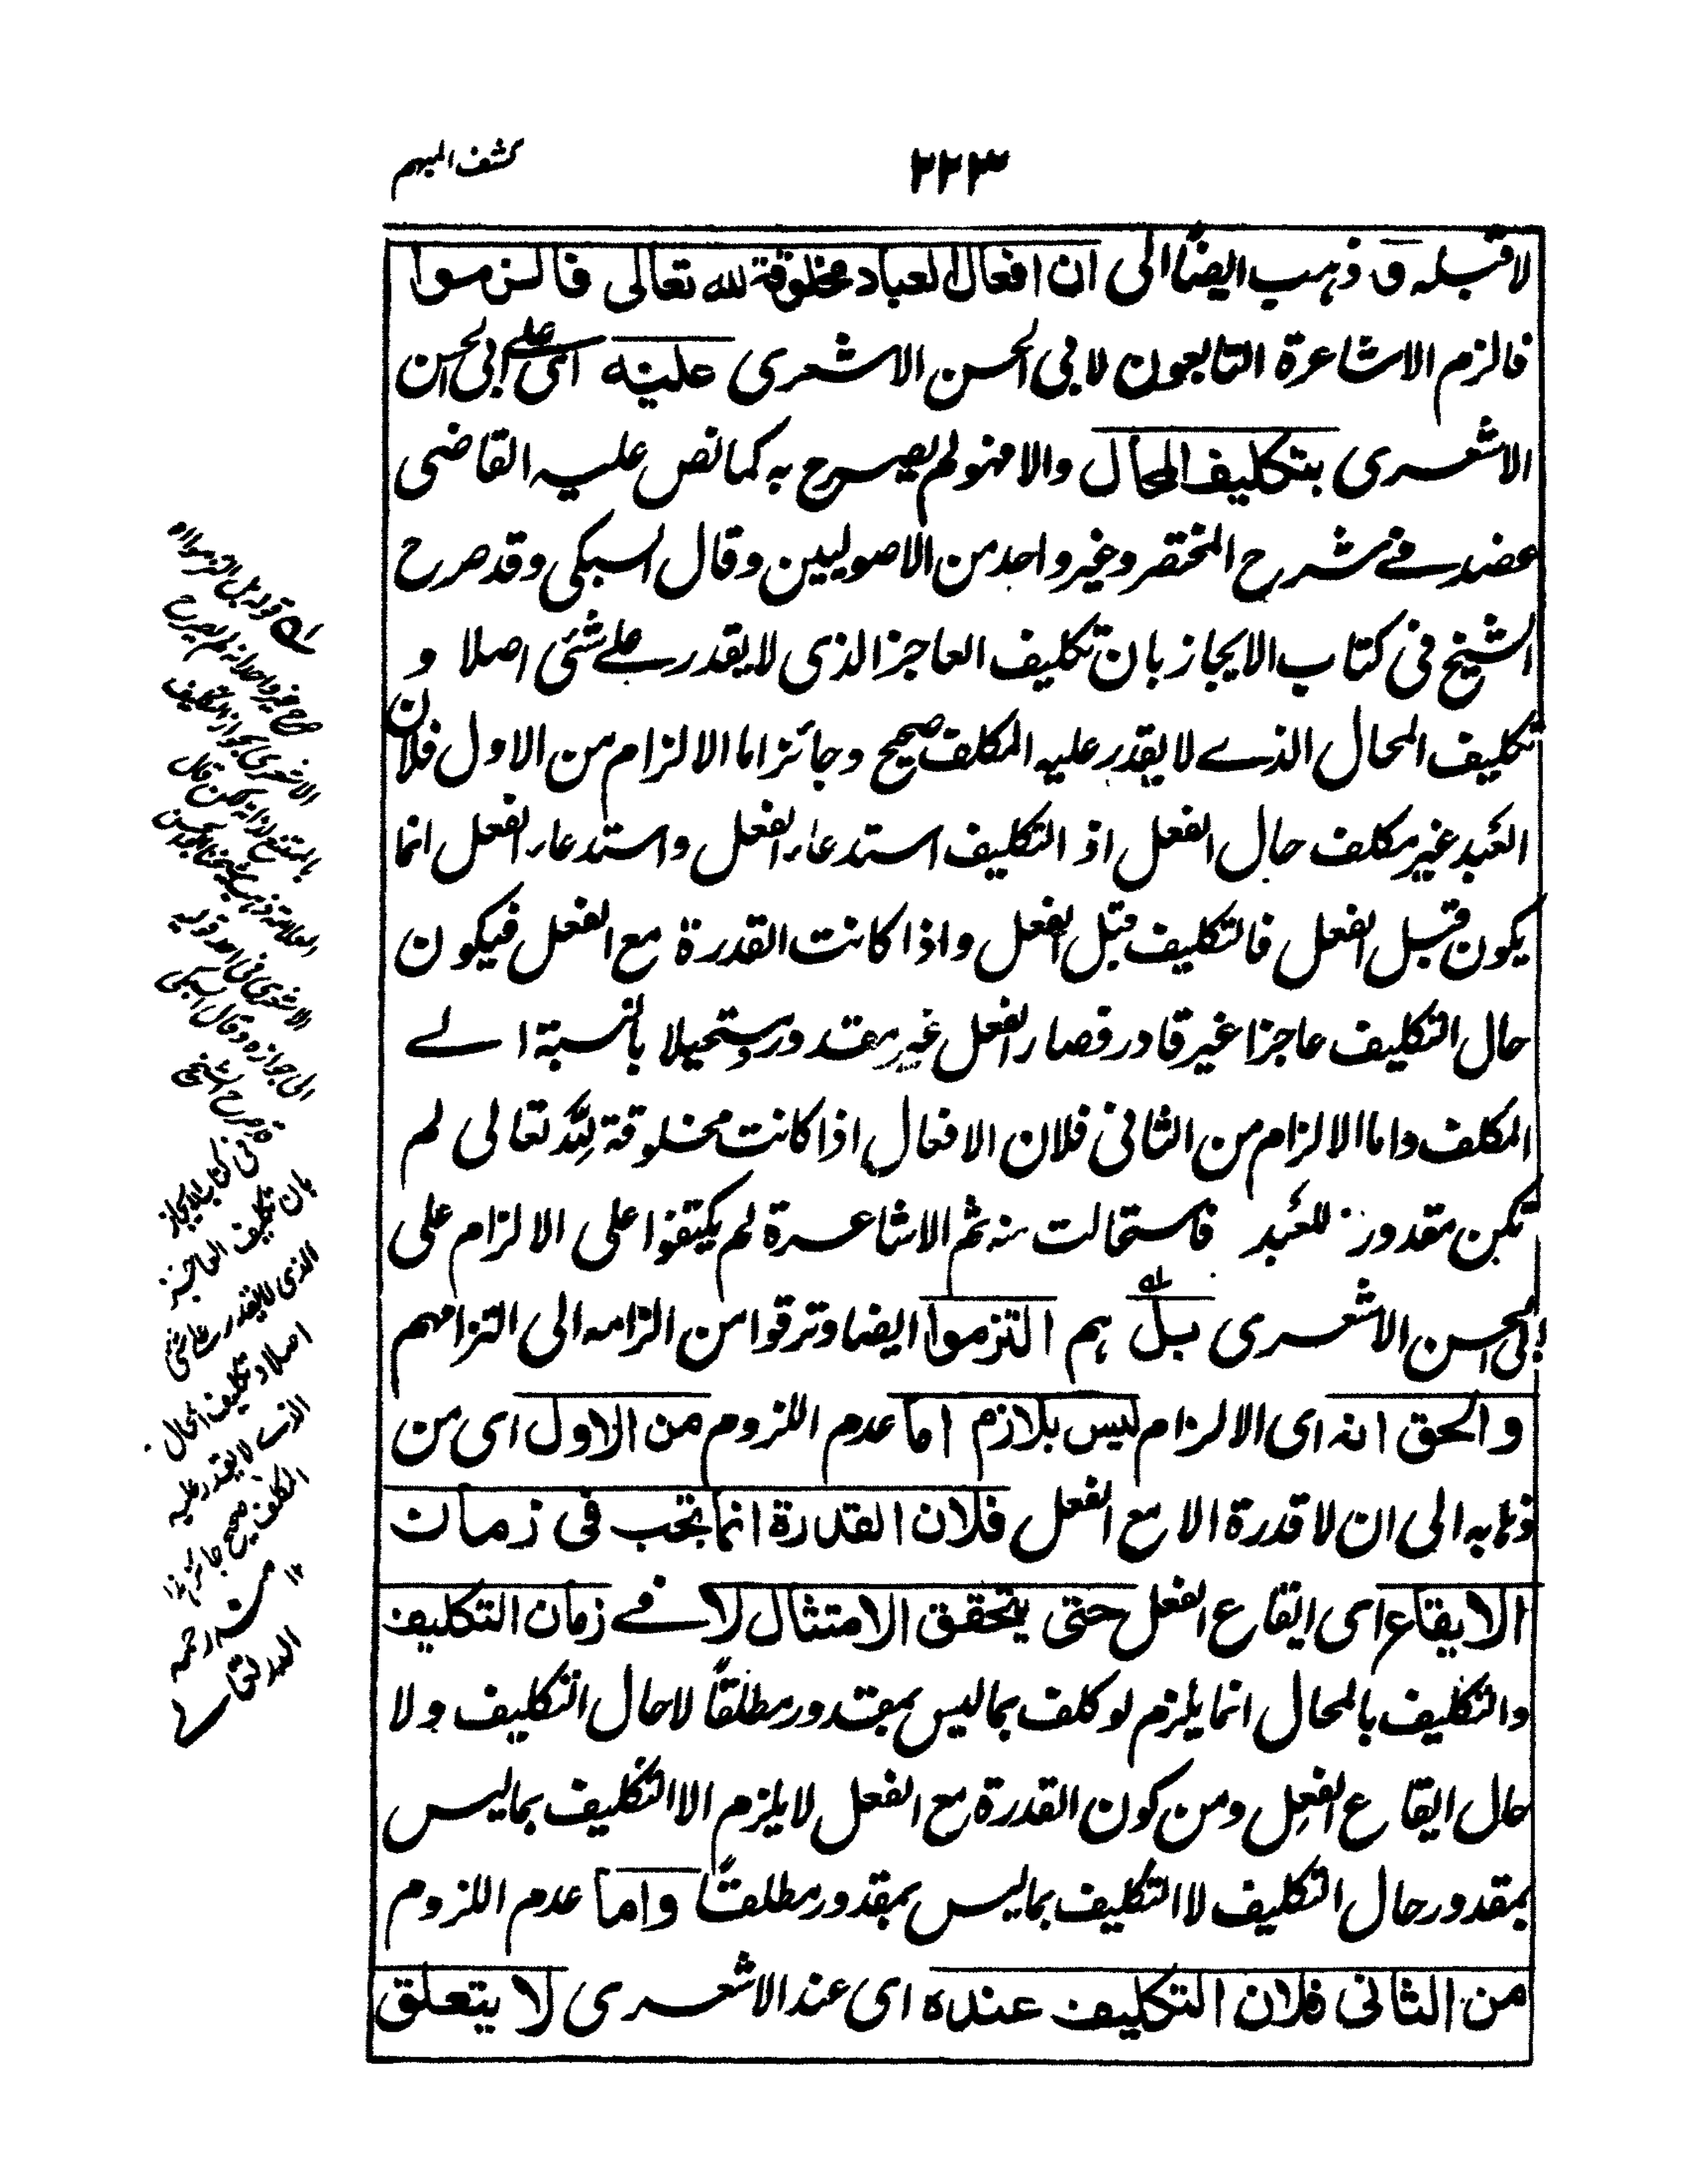 ٢٢٣
كشف المبهم
لا قبله و ذهب ايضًا الى ان افعال العباد مخلوقة لله تعالى فالزموا
فالزم الاشاعرة التابعون لابى الحسن الاشعرى عليه اى على ابى الحسن
الاشعرى بتكليف المحال والا فهو لم يصرح به كما نص عليه القاضى
عضد فے شرح المختصر وغير واحد من الاصوليين وقال السبكى وقد صرح
الشيخ فى كتاب الايجاز بان تكليف العاجز الذى لا يقدر علے شئى اصلا و
تكليف المحال الذے لا يقدر عليه المكلف صحيح وجائز اما الالزام من الاول فلان
العبد غير مكلف حال الفعل اذ التكليف استدعاء الفعل واستدعاء الفعل انما
يكون قبل الفعل فالتكليف قبل الفعل واذا كانت القدرة مع الفعل فيكون
حال التكليف عاجزا غير قادر فصار الفعل غير مقدور ومستحيلا بالنسبة الے
المكلف واما الالزام من الثانى فلان الافعال اذا كانت مخلوقة لله تعالى لم
تكن مقدورة للعبد فاستحالت منه ثم الاشاعرة لم يكتفوا على الالزام على
ابى الحسن الاشعرى بل هم التزموا ايضا وترقوا من الزامه الى التزامهم
والحق انه اى الالزام ليس بلازم اما عدم اللزوم من الاول اى من
ذهابه الى ان لا قدرة الا مع الفعل فلان القدرة انما تجب فى زمان
الايقاع اى ايقاع الفعل حتى يتحقق الامتثال لا فے زمان التكليف
والتكليف بالمحال انما يلزم لو كلف بما ليس بمقدور مطلقًا لا حال التكليف ولا
حال ايقاع الفعل ومن كون القدرة مع الفعل لا يلزم الا التكليف بما ليس
بمقدور حال التكليف لا التكليف بما ليس بمقدور مطلقًا واما عدم اللزوم
من الثانى فلان التكليف عنده اى عند الاشعرى لا يتعلق
له قوله بل التزموا اه
صرح غير واحد انه لم يصرح
الاشعرى بجواز التكليف
بالممتنع لذاته لكن قال
الاشعرى فى احد قوليه
الى جوازه وقال السبكى
قد صرح الشيخ
فى كتاب الايجاز
بان تكليف العاجز
الذى لا يقدر على شئ
اصلا وتكليف المحال
الذے لا يقدر عليه
المكلف صحيح جائز ١٢
منه رحمه